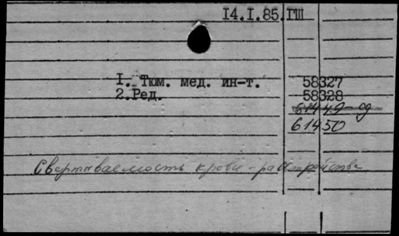 14.I.85 ГШ
1. Тюм. мед. ин-т. 58327
2.Ред. 58328
61449-од
61450
Свертываемость крови - расстройства